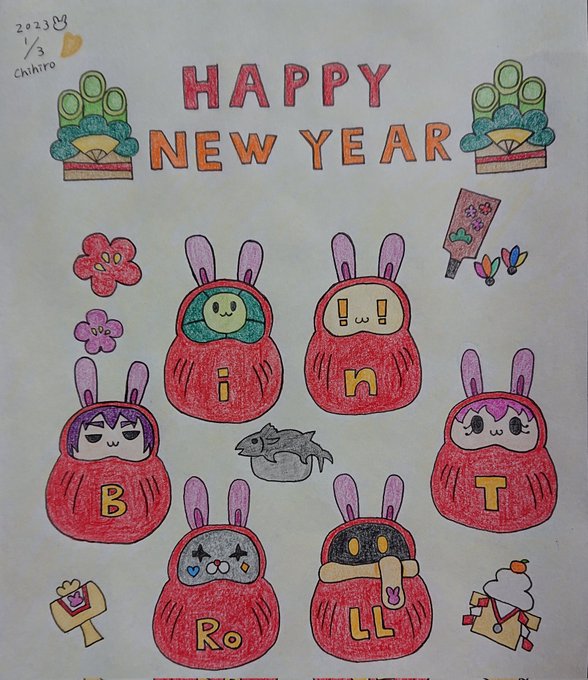 2023
1/3
Chihiro
HAPPY
NEW YEAR
i
n
B
T
Ro
LL